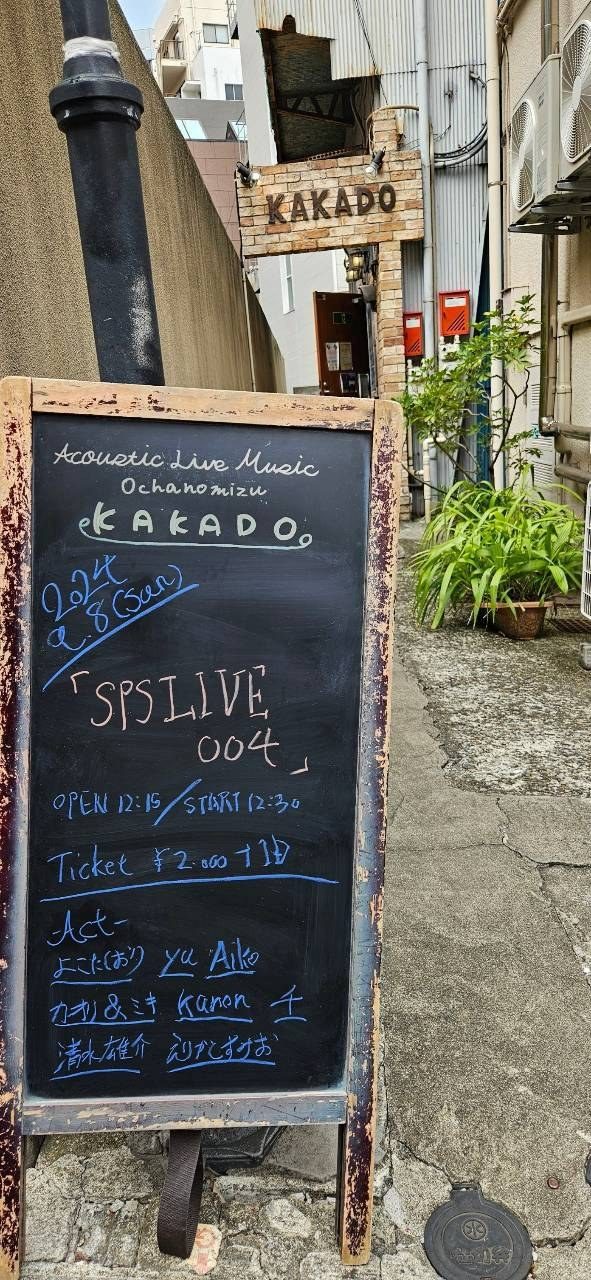 KAKADO
Acoustic Live Music
Ochanomizu
KAKADO
2024
9.8(sun)
「SPSLIVE
004」
OPEN 12:15/START 12:30
Ticket ¥2.000+1D
-Act-
よこた(おり) yu Aiko
カオリ&ミキ Kanon チ
清水雄介 えりかとすすお